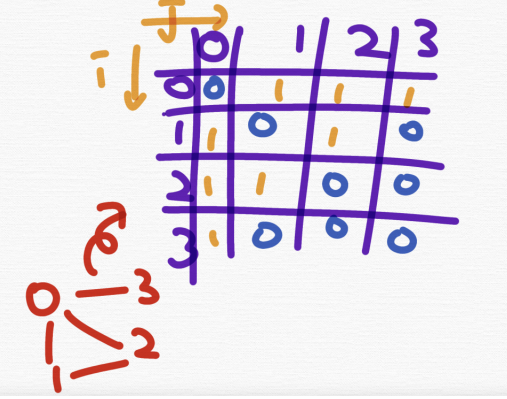 0 1 2 3
i
0 0 1 1 1
1 1 0 1 0
2 1 1 0 0
3 1 0 0 0
0 3
2
1